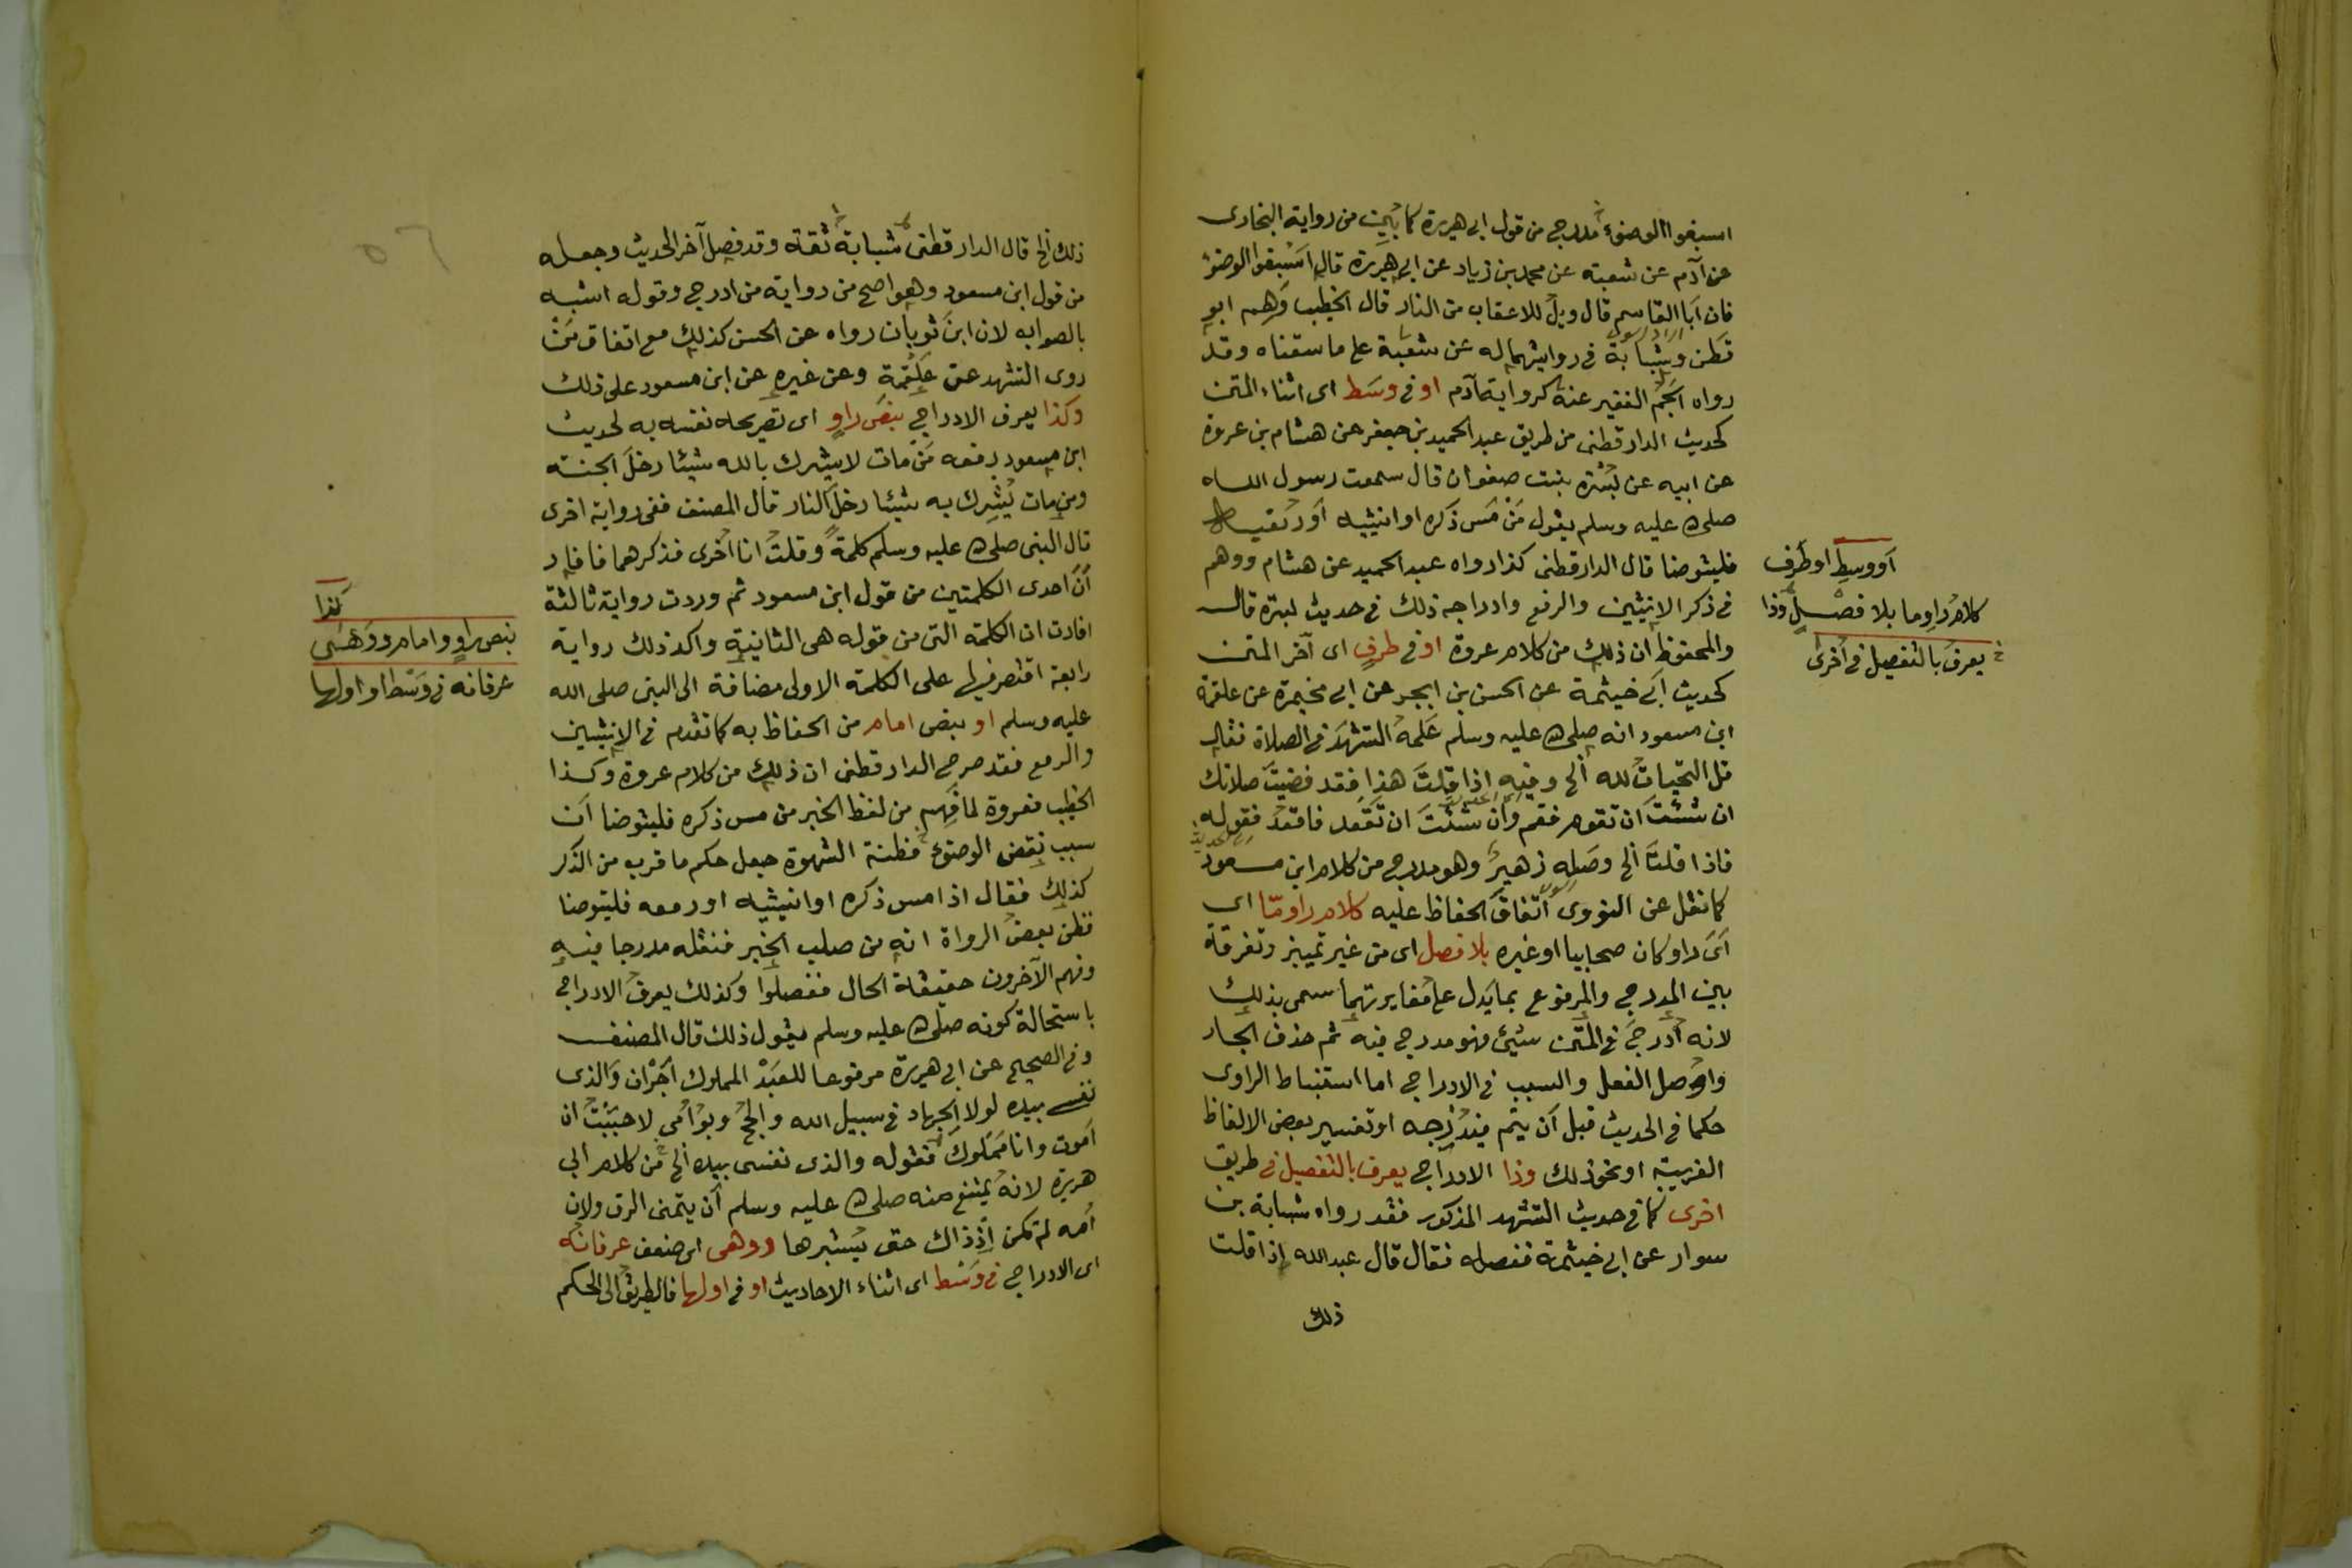 اسبغوا الوضوء مدرج من قول ابي هريرة كما بين من رواية البخارى
عن آدم عن شعبة عن محمد بن زياد عن ابي هريرة قال اسبغوا الوضوء
فان ابا القاسم قال ويل للاعقاب من النار قال الخطيب وهم ابو
قطن وشبابة فى روايتهما له عن شعبة على ما سقناه وقد
رواه الجم الغفير عنه كرواية آدم او فى وسط اى اثناء المتن
كحديث الدارقطنى من طريق عبد الحميد بن جعفر عن هشام بن عروة
عن ابيه عن بسرة بنت صفوان قال سمعت رسول الله
صلى الله عليه وسلم يقول من مس ذكره او انثييه او رفغيه
فليتوضا قال الدارقطنى كذا رواه عبد الحميد عن هشام ووهم
فى ذكر الانثيين والرفع وادراجه ذلك فى حديث بسرة قال
والمحفوظ ان ذلك من كلام عروة او فى طرف اى آخر المتن
كحديث ابى خيثمة عن الحسن بن ابجر عن ابى مخيمرة عن علقمة
ابن مسعود انه صلى الله عليه وسلم علمه التشهد فى الصلاة فقال
قل التحيات لله الخ وفيه اذا قلت هذا فقد قضيت صلاتك
ان شئت ان تقوم فقم وان شئت ان تقعد فاقعد فقوله
فاذا قلت الخ وصله زهير وهو مدرج من كلام ابن مسعود
كما نقل عن النووى اتفاق الحفاظ عليه كلام راو مّا اى
اىّ راو كان صحابيا او غيره بلا فصل اى من غير تمييز وتفرقة
بين المدرج والمرفوع بما يدل على مغايرتهما سمى بذلك
لانه ادرج فى المتن شيئ فهو مدرج فيه ثم حذف الجار
واوصل الفعل والسبب فى الادراج اما استنباط الراوى
حكما فى الحديث قبل ان يتم فيدرجه او تفسير بعض الالفاظ
الغريبة او نحو ذلك وذا الادراج يعرف بالتفصيل فى طريق
اخرى كما فى حديث التشهد المذكور فقد رواه شبابة بن
سوار عن ابى خيثمة ففصله فقال قال عبد الله اذا قلت
ذلك
او وسط او طرف
كلام راو ما بلا فصل وذا
يعرف بالتفصيل فى اخرى
ذلك الخ قال الدارقطنى شبابة ثقة وقد فصل آخر الحديث وجعله
من قول ابن مسعود وهو اصح من رواية من ادرج وقوله اشبه
بالصواب لان ابن ثوبان رواه عن الحسن كذلك مع اتفاق من
روى التشهد عن علقمة وعن غيره عن ابن مسعود على ذلك
وكذا يعرف الادراج بنص راو اى تصريحه نفسه به لحديث
ابن مسعود رفعه من مات لا يشرك بالله شيئا دخل الجنة
ومن مات يشرك به شيئا دخل النار قال المصنف ففى رواية اخرى
قال النبى صلى الله عليه وسلم كلمة وقلت انا اخرى فذكرهما فافاد
ان احدى الكلمتين من قول ابن مسعود ثم وردت رواية ثالثة
افادت ان الكلمة التى من قوله هى الثانية واكد ذلك رواية
رابعة اقتصر فيها على الكلمة الاولى مضافة الى النبى صلى الله
عليه وسلم او بنص امام من الحفاظ به كما تقدم فى الانثيين
والرمع فقد صرح الدارقطنى ان ذلك من كلام عروة وكذا
الخطيب فعروة لما فهم من لفظ الخبر من مس ذكره فليتوضا ان
سبب نقض الوضوء مظنة الشهوة جعل حكم ما قرب من الذكر
كذلك فقال اذا مس ذكره او انثييه او رمعه فليتوضا
فظن بعض الرواة انه من صلب الخبر فنقله مدرجا فيه
وفهم الآخرون حقيقة الحال ففصلوا وكذلك يعرف الادراج
باستحالة كونه صلى الله عليه وسلم يقول ذلك قال المصنف
وفى الصحيح عن ابى هريرة مرفوعا للعبد المملوك اجران والذى
نفسى بيده لولا الجهاد فى سبيل الله والحج وبر امى لاحببت ان
اموت وانا مملوك فقوله والذى نفسى بيده الخ من كلام ابى
هريرة لانه يمتنع منه صلى الله عليه وسلم ان يتمنى الرق ولان
امه لم تكن اذ ذاك حتى يبرها ووهى اى ضعف عرفانه
اى الادراج فى وسط اى اثناء الاحاديث او فى اولها فالطريق الى الحكم
كذا
بنص راو وامام ووهى
عرفانه فى وسط او اولها